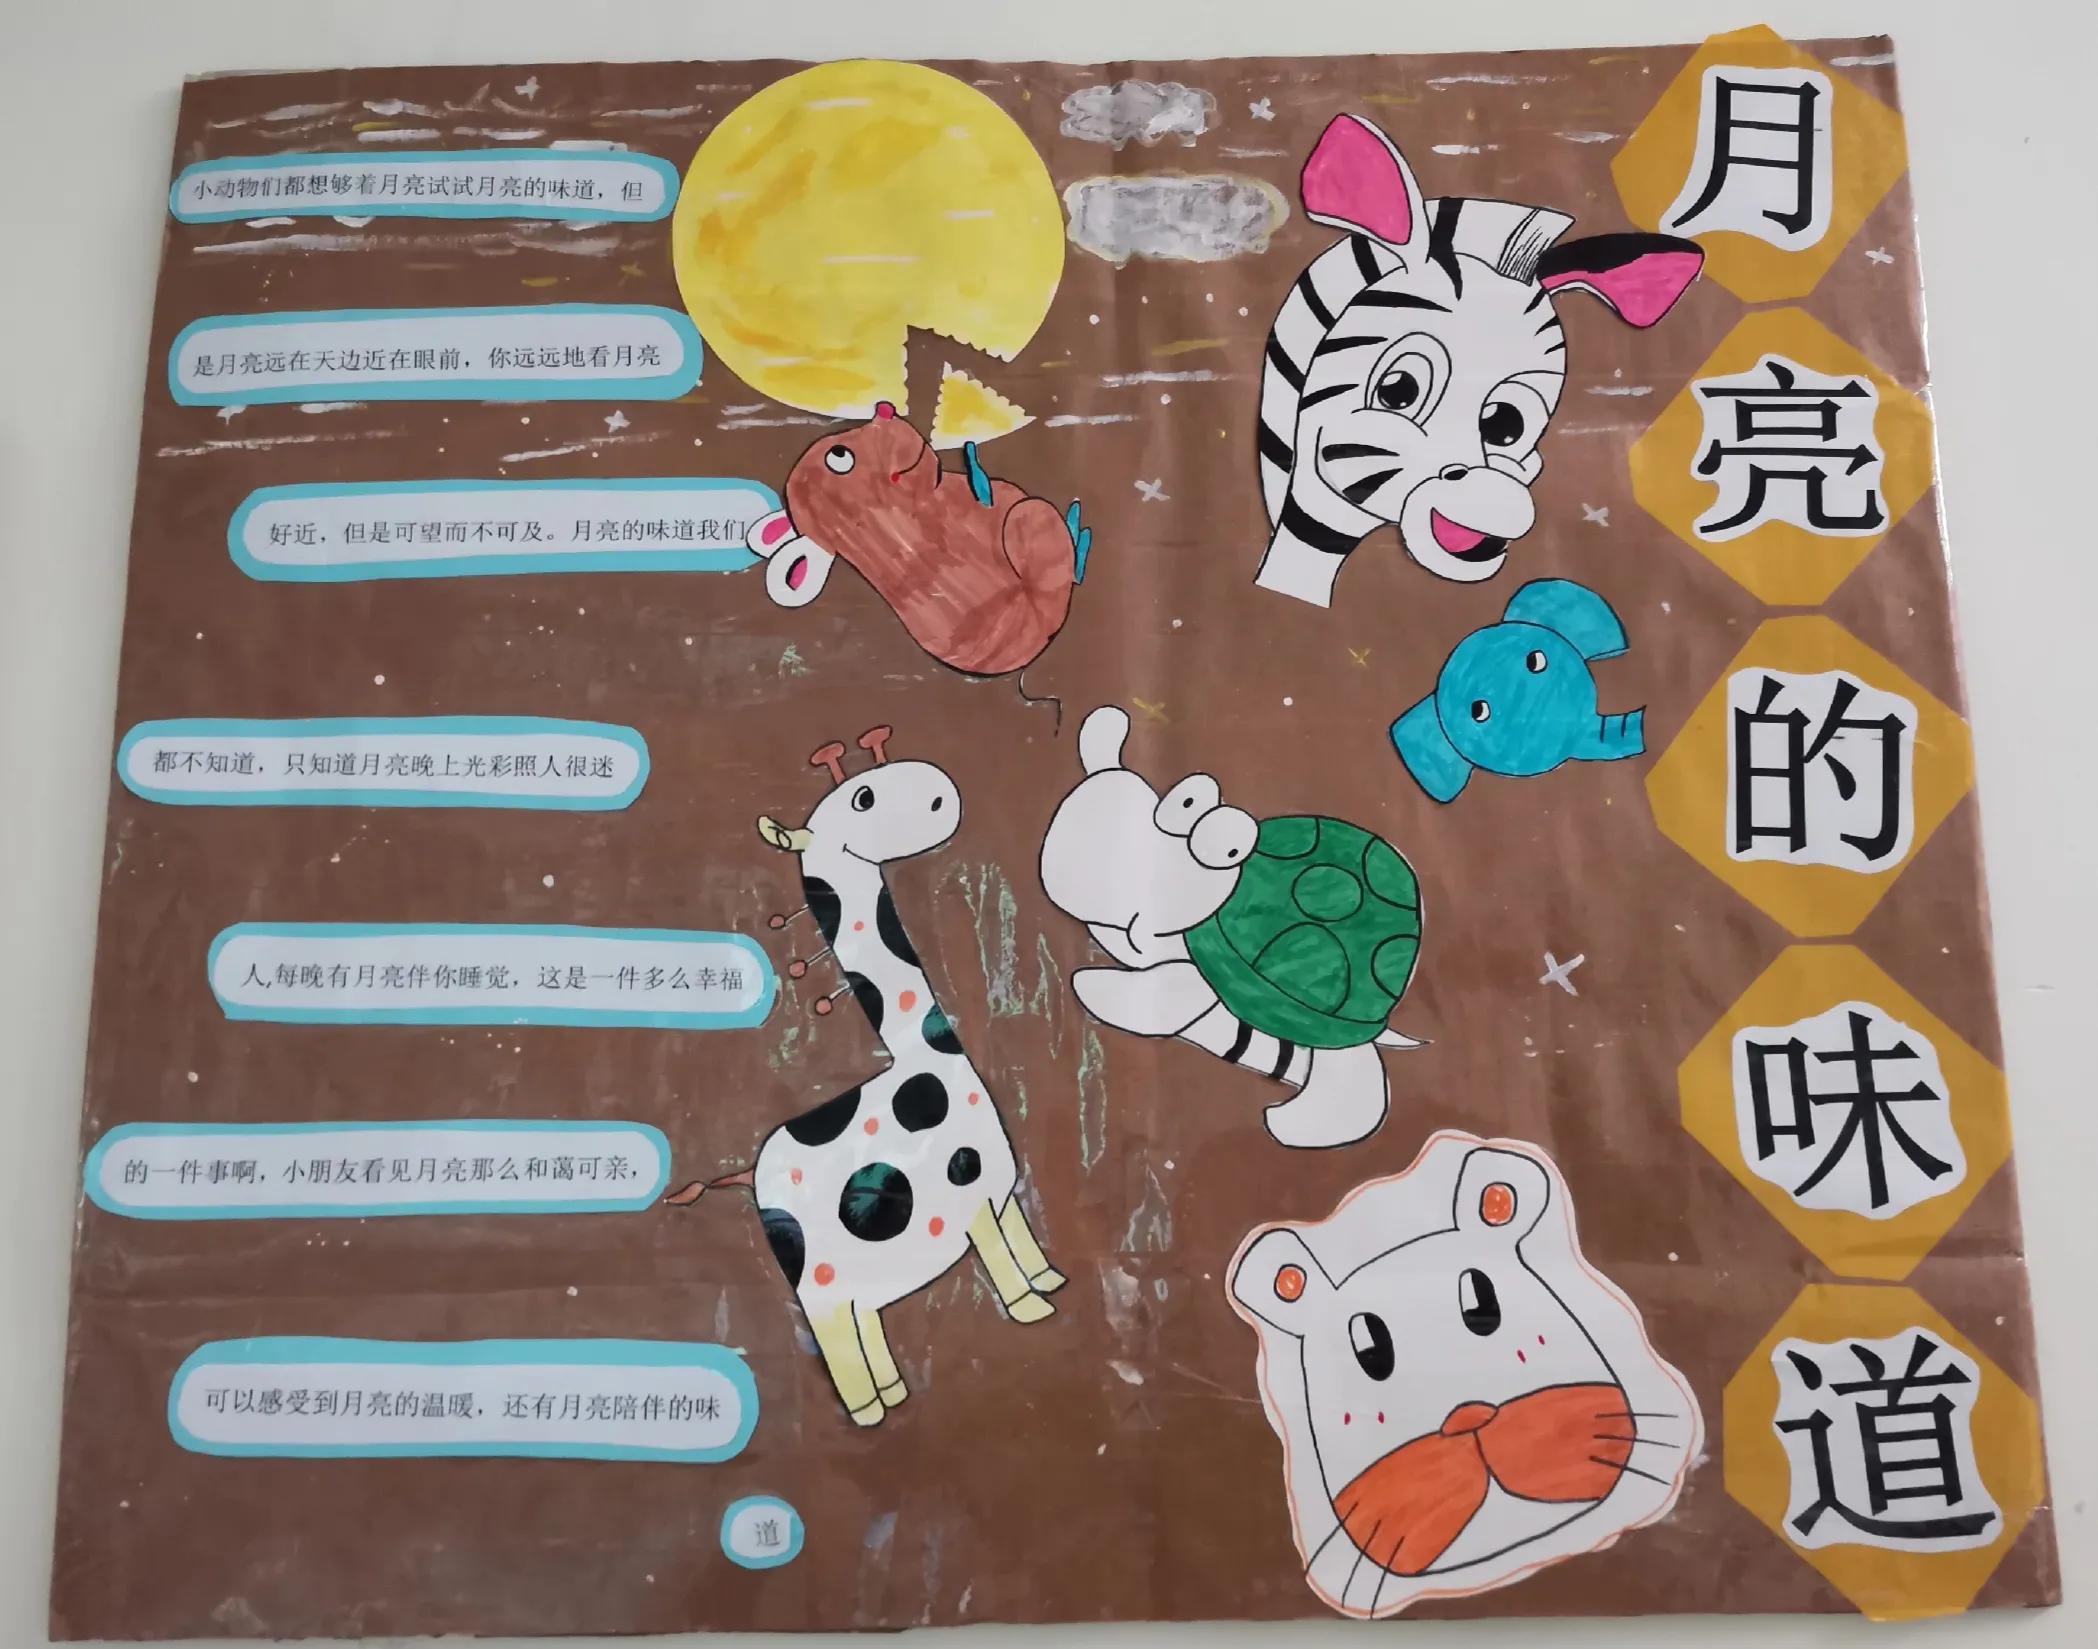 月亮的味道
小动物们都想够着月亮试试月亮的味道，但
是月亮远在天边近在眼前，你远远地看月亮
好近，但是可望而不可及。月亮的味道我们
都不知道，只知道月亮晚上光彩照人很迷
人,每晚有月亮伴你睡觉，这是一件多么幸福
的一件事啊，小朋友看见月亮那么和蔼可亲，
可以感受到月亮的温暖，还有月亮陪伴的味
道